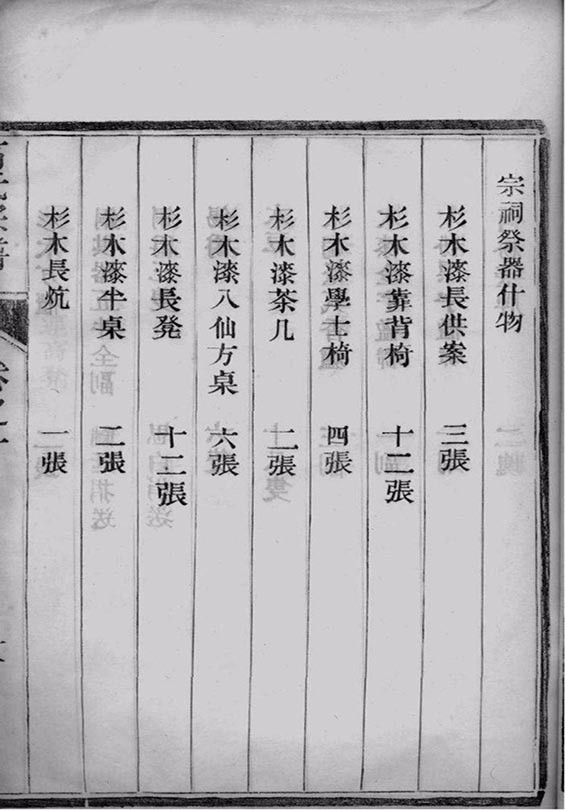 宗祠祭器什物
杉木漆長供案 三張
杉木漆靠背椅 十二張
杉木漆學士椅 四張
杉木漆茶几 二張
杉木漆八仙方桌 六張
杉木漆長凳 十二張
杉木漆半桌 二張
杉木長炕 一張